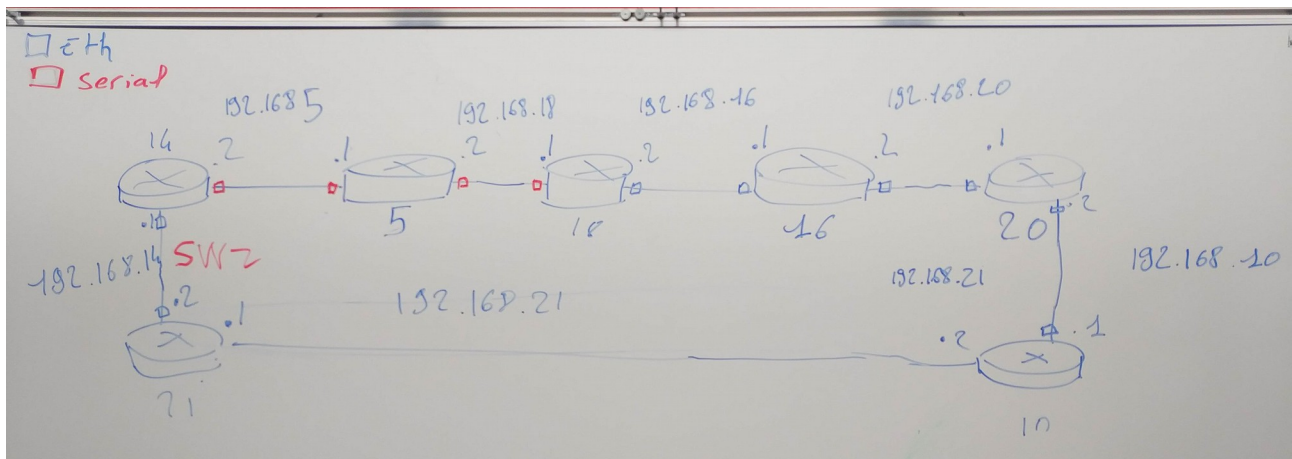 Eth
Serial
192.168 5
192.168.18
192.168.16
192.168.20
14
.2
.1
.2
.1
.2
.1
.2
.1
5
18
16
20
.2
.1
192.168.14
SW2
192.168.10
192.168.21
192.168.21
.2
.1
.2
.1
21
10